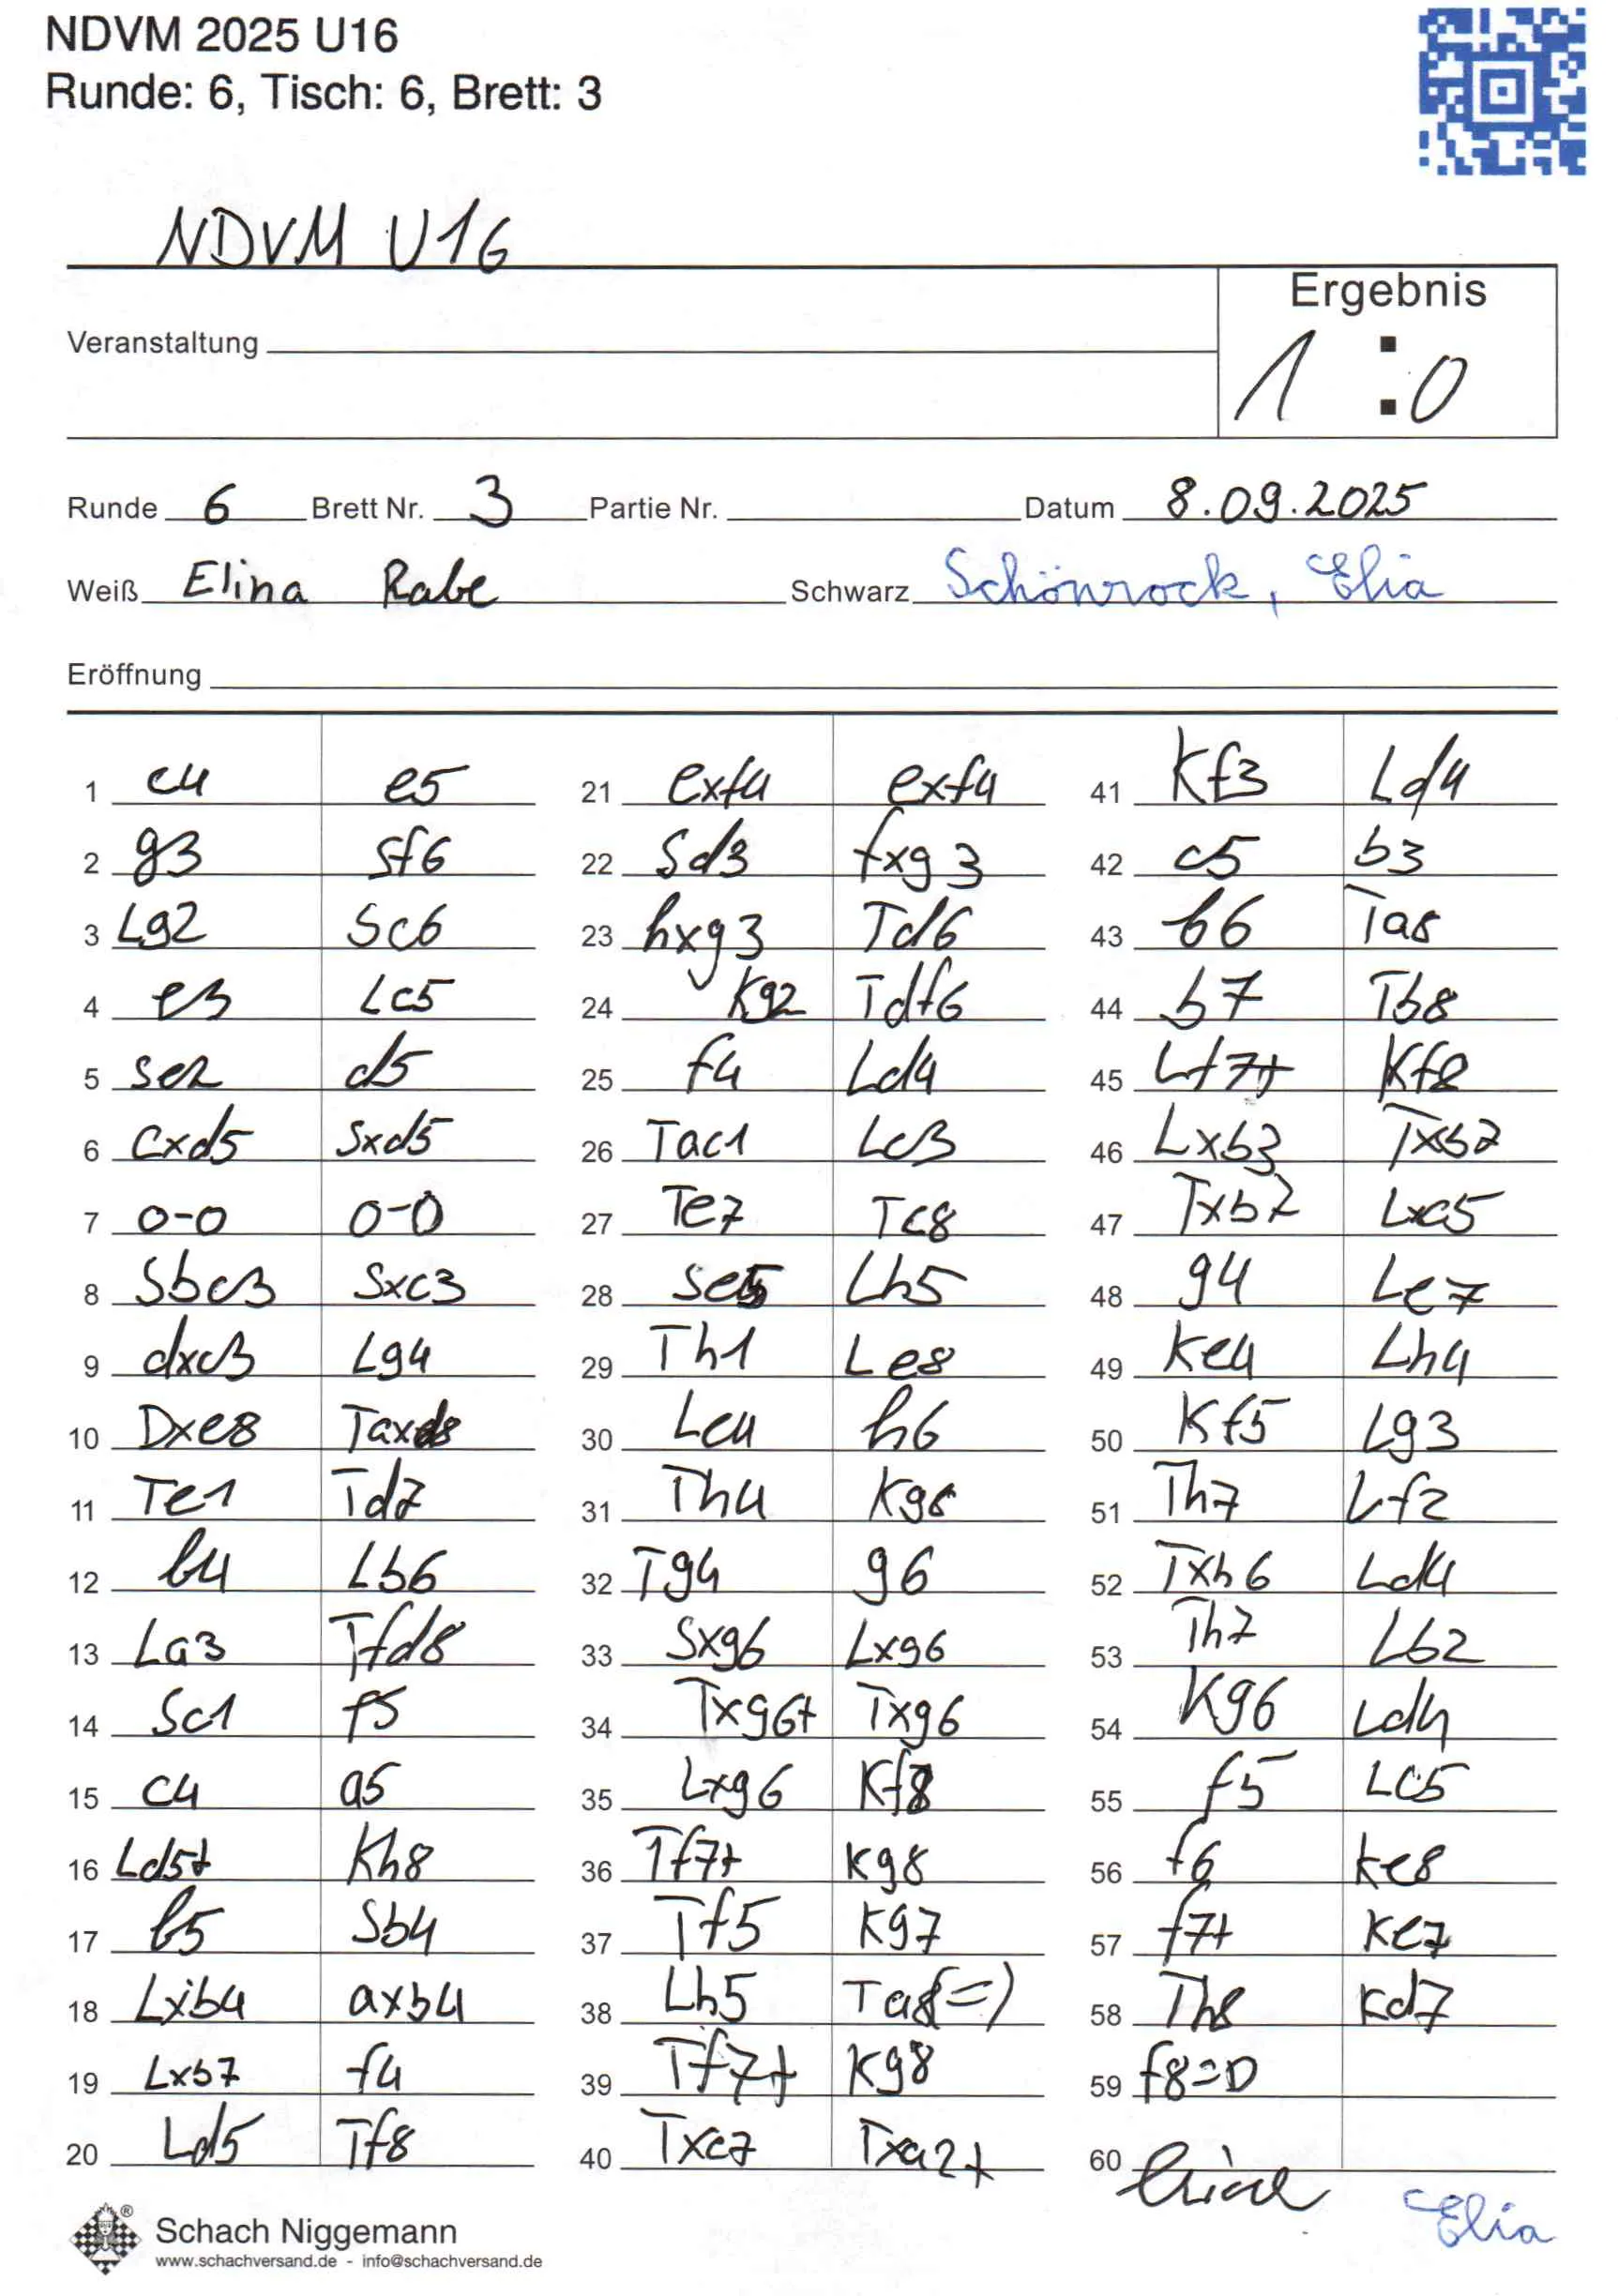 NDVM 2025 U16
Runde: 6, Tisch: 6, Brett: 3
NDVM U16
Ergebnis
Veranstaltung
1 : 0
Runde 6 Brett Nr. 3 Partie Nr. Datum 8.09.2025
Weiß Elina Rabe Schwarz Schönrock, Elia
Eröffnung
1 c4 e5
2 g3 Sf6
3 Lg2 Sc6
4 e3 Lc5
5 Se2 d5
6 cxd5 Sxd5
7 0-0 0-0
8 Sbc3 Sxc3
9 dxc3 Lg4
10 Dxe8 Taxd8
11 Te1 Td7
12 b4 Lb6
13 La3 Tfd8
14 Sc1 f5
15 c4 a5
16 Ld5+ Kh8
17 b5 Sb4
18 Lxb4 axb4
19 Lxb7 f4
20 Ld5 Tf8
21 exf4 exf4
22 Sd3 fxg3
23 hxg3 Td6
24 Kg2 Tdf6
25 f4 Ld4
26 Tac1 Lc3
27 Te7 Tc8
28 Se5 Lh5
29 Th1 Le8
30 Le4 h6
31 Th4 Kg8
32 Tg4 g6
33 Sxg6 Lxg6
34 Txg6+ Txg6
35 Lxg6 Kf8
36 Tf7+ Kg8
37 Tf5 Kg7
38 Lh5 Ta8(=)
39 Tf7+ Kg8
40 Txc7 Txa2+
41 Kf3 Ld4
42 c5 b3
43 b6 Ta8
44 b7 Tb8
45 Lf7+ Kf8
46 Lxb3 Txb7
47 Txb7 Lxc5
48 g4 Le7
49 Ke4 Lh4
50 Kf5 Lg3
51 Th7 Lf2
52 Txh6 Ld4
53 Th7 Lb2
54 Kg6 Ld4
55 f5 Lc5
56 f6 Ke8
57 f7+ Ke7
58 Th8 Kd7
59 f8=D
60
Elia
Schach Niggemann
www.schachversand.de - info@schachversand.de